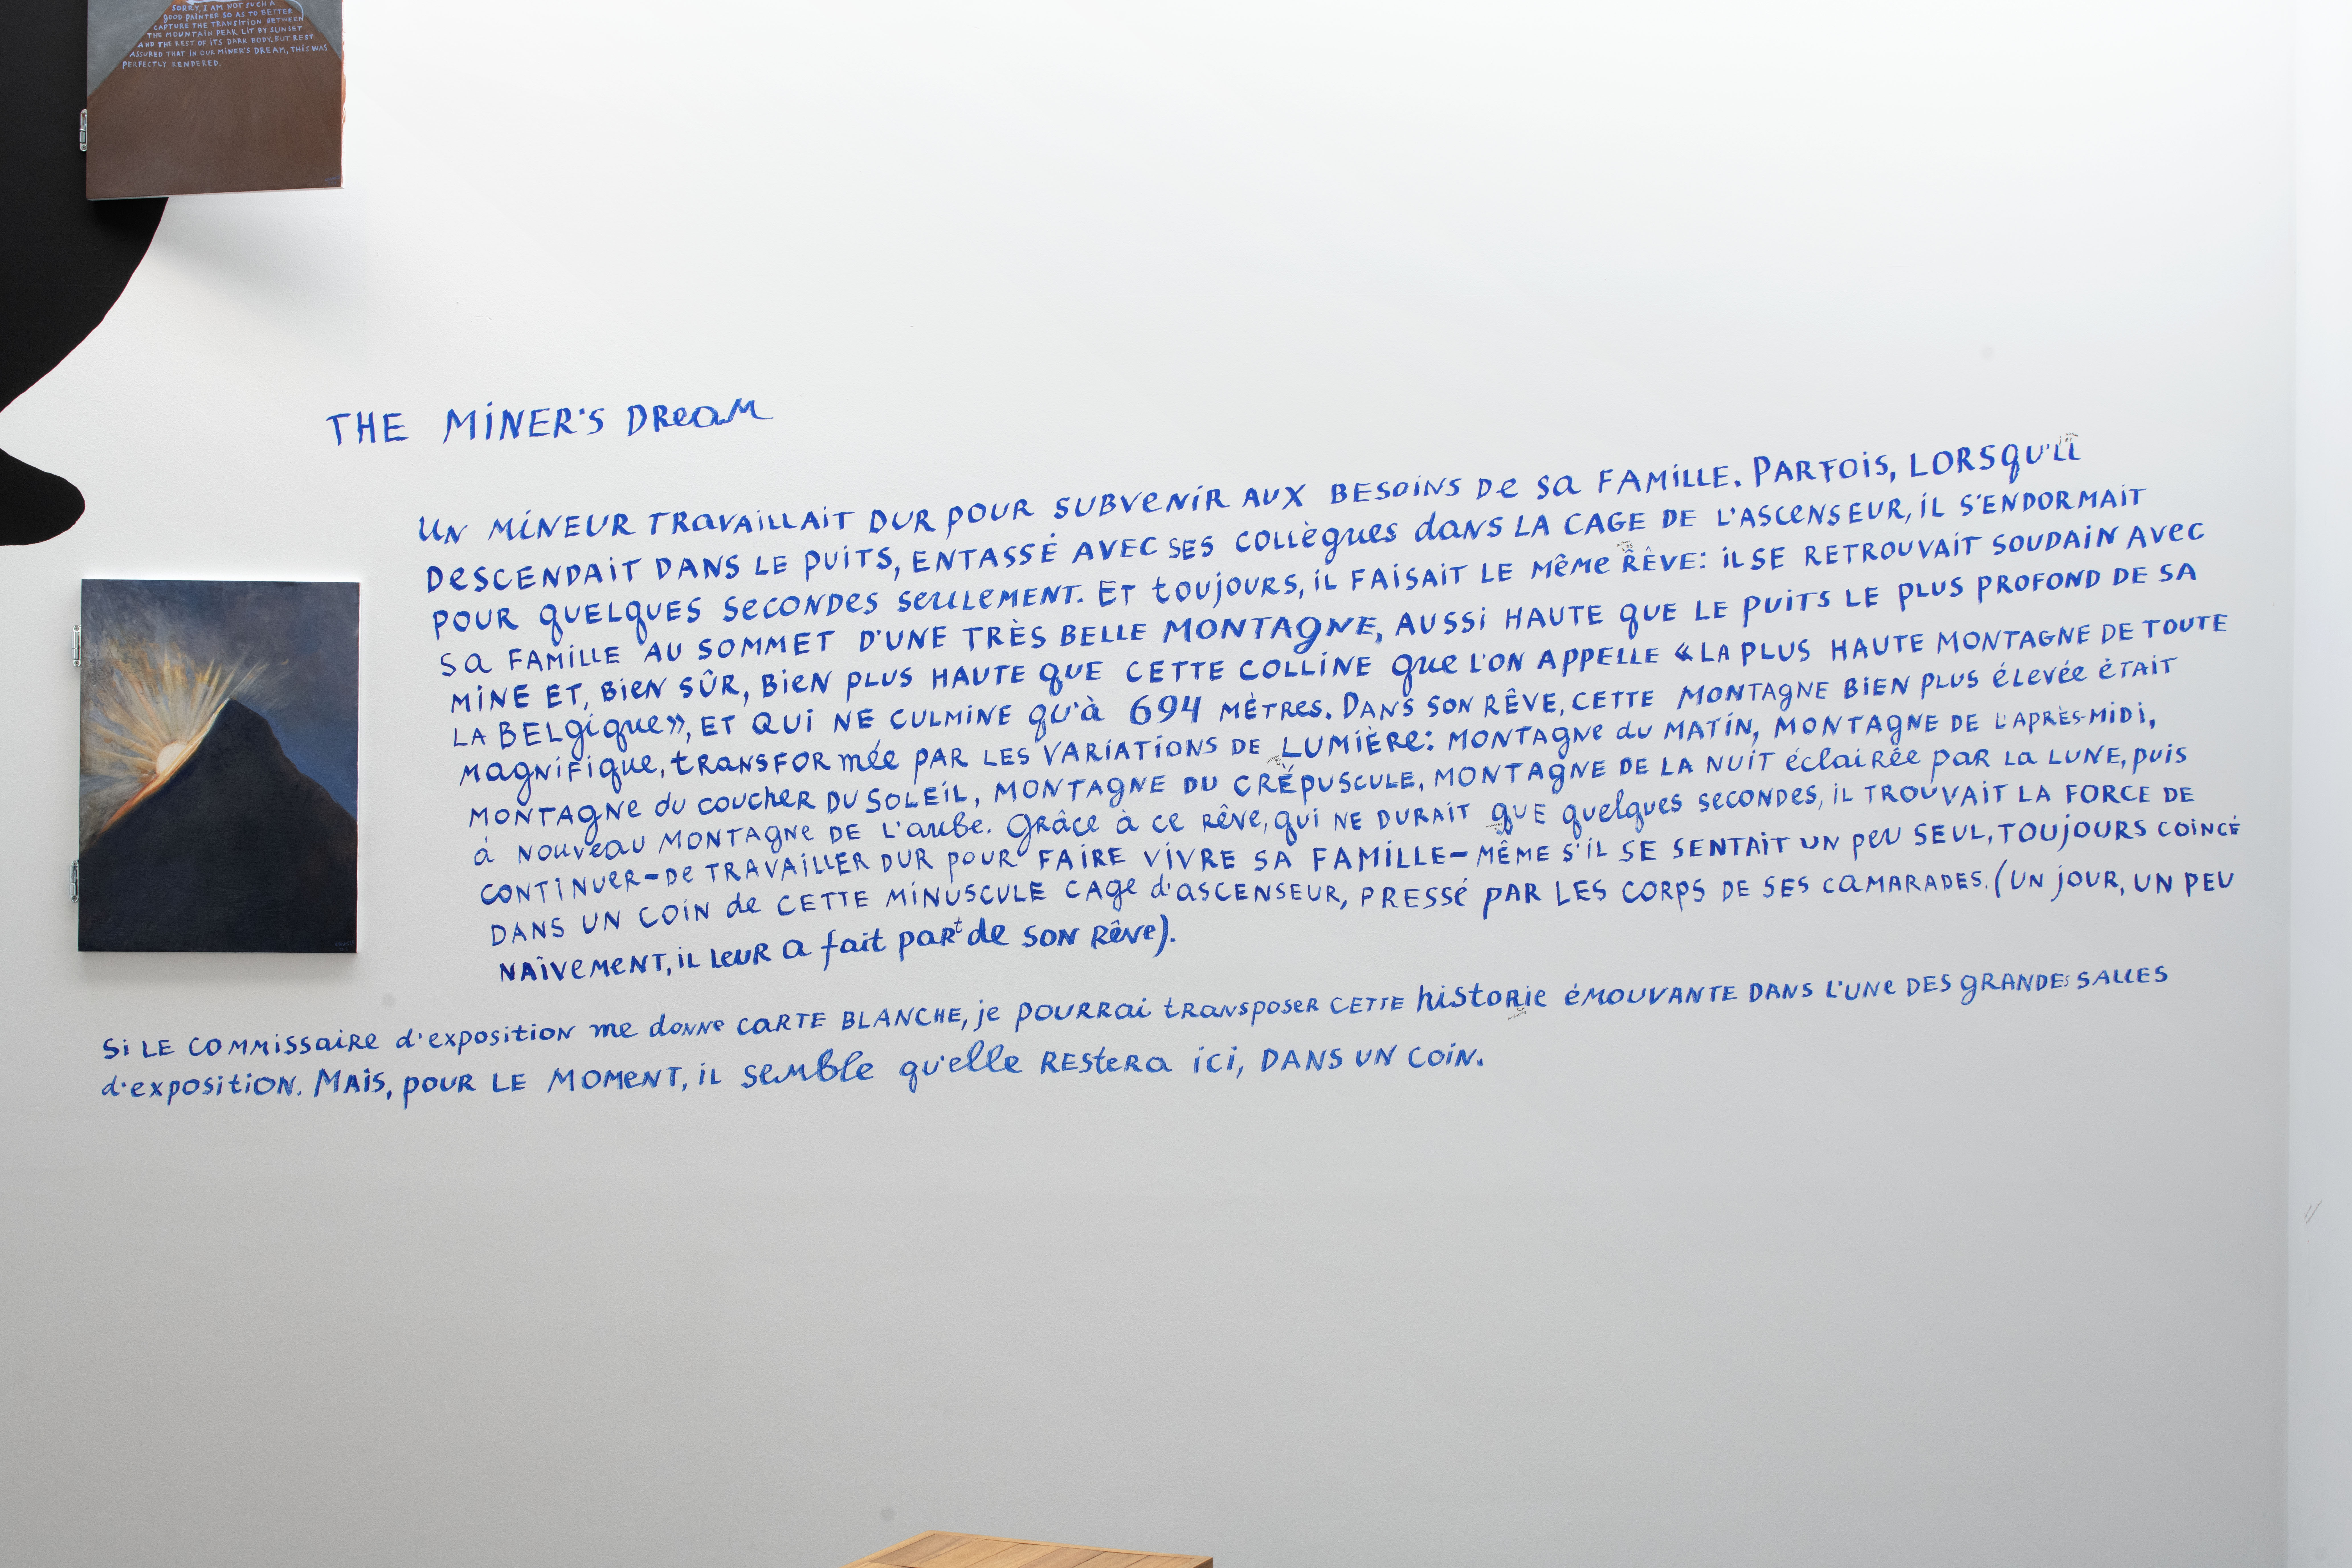 SORRY, I AM NOT SUCH A
GOOD PAINTER SO AS TO BETTER
CAPTURE THE TRANSITION BETWEEN
THE MOUNTAIN PEAK LIT BY SUNSET
AND THE REST OF ITS DARK BODY, BUT REST
ASSURED THAT IN OUR MINER'S DREAM, THIS WAS
PERFECTLY RENDERED.
THE MINER'S DREAM
UN MINEUR TRAVAILLAIT DUR POUR SUBVENIR AUX BESOINS DE SA FAMILLE. PARFOIS, LORSQU'IL
DESCENDAIT DANS LE PUITS, ENTASSÉ AVEC SES COLLÈGUES DANS LA CAGE DE L'ASCENSEUR, IL S'ENDORMAIT
POUR QUELQUES SECONDES SEULEMENT. ET TOUJOURS, IL FAISAIT LE MÊME RÊVE: IL SE RETROUVAIT SOUDAIN AVEC
SA FAMILLE AU SOMMET D'UNE TRÈS BELLE MONTAGNE, AUSSI HAUTE QUE LE PUITS LE PLUS PROFOND DE SA
MINE ET, BIEN SÛR, BIEN PLUS HAUTE QUE CETTE COLLINE QUE L'ON APPELLE «LA PLUS HAUTE MONTAGNE DE TOUTE
LA BELGIQUE», ET QUI NE CULMINE QU'À 694 MÈTRES. DANS SON RÊVE, CETTE MONTAGNE BIEN PLUS ÉLEVÉE ÉTAIT
MAGNIFIQUE, TRANSFORMÉE PAR LES VARIATIONS DE LUMIÈRE: MONTAGNE DU MATIN, MONTAGNE DE L'APRÈS-MIDI,
MONTAGNE DU COUCHER DU SOLEIL, MONTAGNE DU CRÉPUSCULE, MONTAGNE DE LA NUIT ÉCLAIRÉE PAR LA LUNE, PUIS
À NOUVEAU MONTAGNE DE L'AUBE. GRÂCE À CE RÊVE, QUI NE DURAIT QUE QUELQUES SECONDES, IL TROUVAIT LA FORCE DE
CONTINUER-DE TRAVAILLER DUR POUR FAIRE VIVRE SA FAMILLE-MÊME S'IL SE SENTAIT UN PEU SEUL, TOUJOURS COINCÉ
DANS UN COIN DE CETTE MINUSCULE CAGE D'ASCENSEUR, PRESSÉ PAR LES CORPS DE SES CAMARADES. (UN JOUR, UN PEU
NAÏVEMENT, IL LEUR A FAIT PART DE SON RÊVE).
SI LE COMMISSAIRE D'EXPOSITION ME DONNE CARTE BLANCHE, JE POURRAI TRANSPOSER CETTE HISTORIE ÉMOUVANTE DANS L'UNE DES GRANDES SALLES
D'EXPOSITION. MAIS, POUR LE MOMENT, IL SEMBLE QU'ELLE RESTERA ICI, DANS UN COIN.